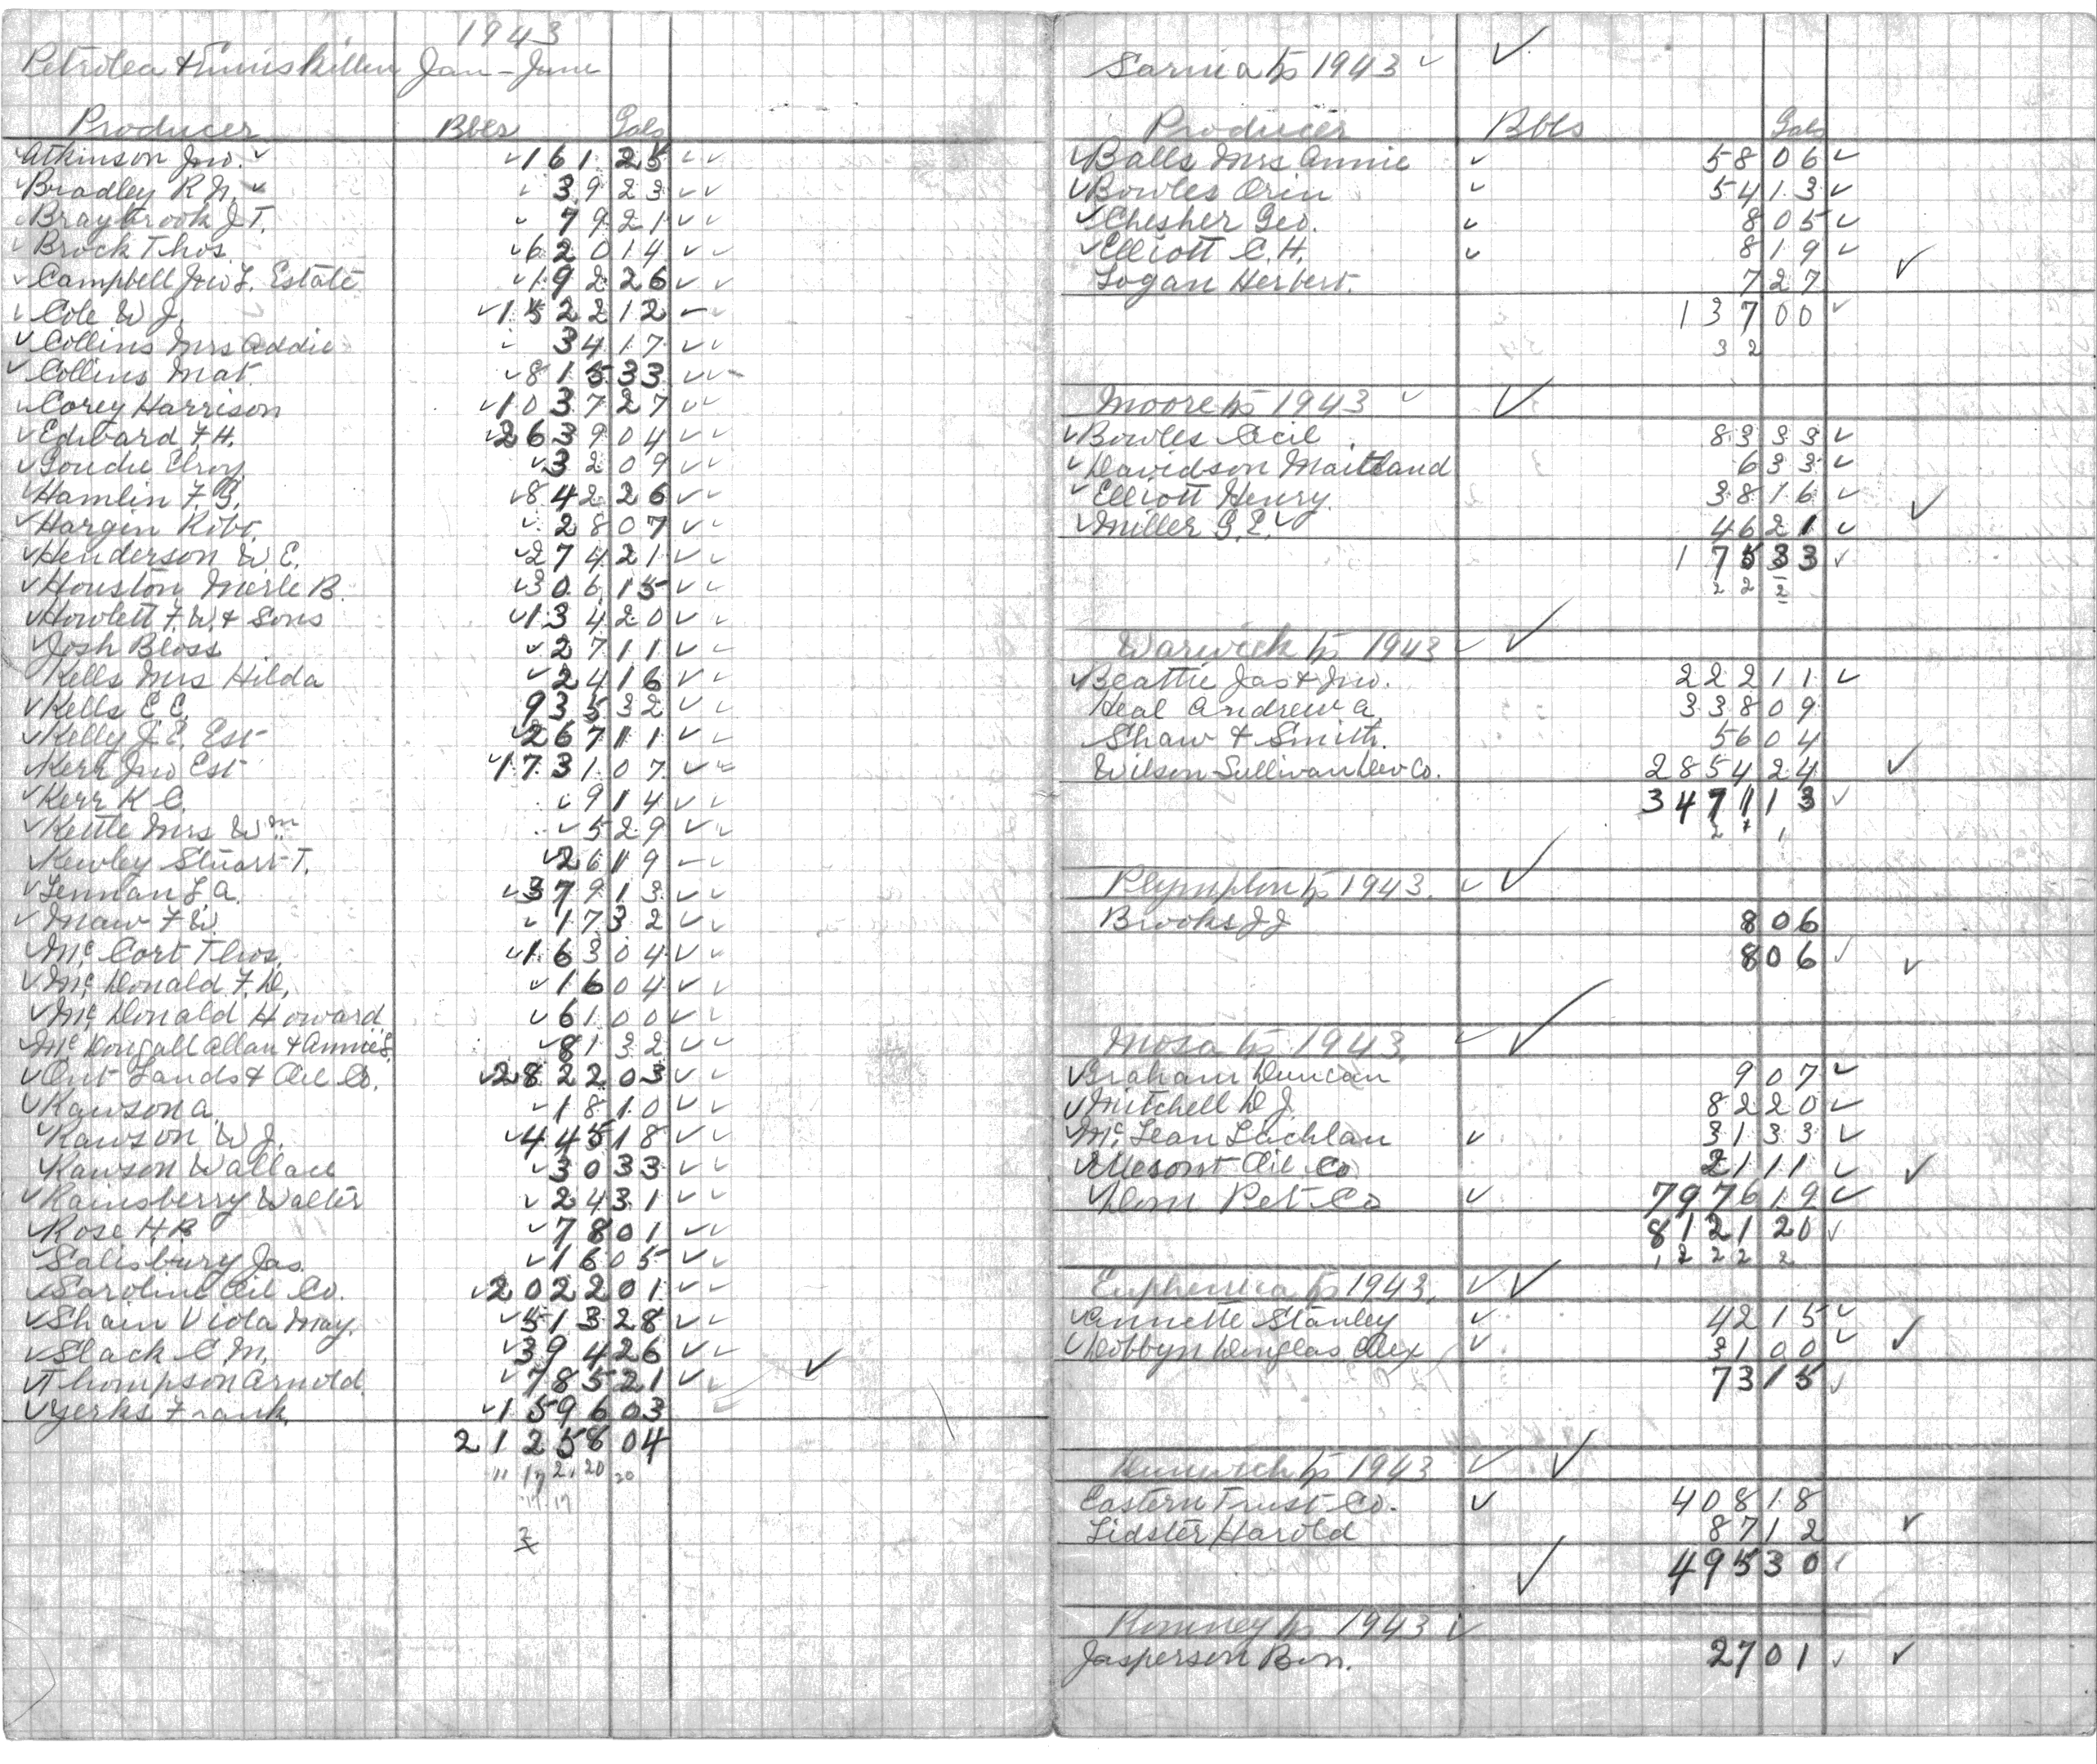 1943
Petrolea & Enniskillen Jan - June
Producer Bbls Gals
Atkinson Jno. 161 25
Bradley R.N. 39 23
Braybrook J T. 79 21
Brock Thos. 620 14
Campbell Jno L. Estate 192 26
Cole W J. 1522 12
Collins Mrs Addie 34 17
Collins Mat. 815 33
Corey Harrison 1037 27
Edward F.H. 2639 04
Goudie Elroy 32 09
Hamlin F. G. 842 26
Hargin Robt. 28 07
Henderson W. E. 274 21
Houston Merle B. 306 15
Howlett F. W. & Sons 134 20
Josh Bloss 27 11
Kells Mrs Hilda 24 16
Kells E. E. 935 32
Kelly J. E. Est 267 11
Kerr Jno Est 1731 07
Kerr K C. 9 14
Kettle Mrs Wm 5 29
Kewley Stuart T. 26 19
Lennan L. A. 379 13
Maw F W. 17 32
Mc Cort Thos. 163 04
Mc Donald F. D. 16 04
Mc Donald Howard 61 00
Mc Dougall Allan & Annie S. 81 32
Ont Lands & Oil Co. 2822 03
Rawson A. 18 10
Rawson W J. 445 18
Rawson Wallace 30 33
Rainsberry Walter 24 31
Rose H B 78 01
Salisbury Jas. 16 05
Saroline Oil Co. 2022 01
Shain Viola May. 513 28
Slack C. M. 394 26
Thompson Arnold 785 21
Yerks Frank. 1596 03
21258 04
11 17 21 20 20
17 17
2
Sarnia tp 1943
Producer Bbls Gals
Balls Mrs Annie 58 06
Bowles Orin 54 13
Chesher Geo. 8 05
Elliott C. H. 8 19
Logan Herbert. 7 27
137 00
3 2
Moore tp 1943
Bowles Cecil 83 33
Davidson Maitland 6 33
Elliott Henry 38 16
Miller G. E. 46 21
175 33
2 2 2
Warwick tp 1943
Beattie Jas & Jno. 222 11
Heal Andrew A 338 09
Shaw & Smith. 56 04
Wilson-Sullivan Dev Co. 2854 24
3471 13
2 1
Plympton tp 1943.
Brooks J J 8 06
8 06
Mosa tp 1943.
Graham Duncan 9 07
Mitchell D J. 82 20
Mc Lean Lachlan 31 33
Mesont Oil Co 21 11
Dom Pet Co 7976 19
8121 20
1 2 2 2 2
Euphemia tp 1943.
Annette Stanley 42 15
Dobbyn Douglas Alex 31 00
73 15
Dunwich tp 1943
Eastern Trust Co. 408 18
Lidster Harold 87 12
495 30
Romney tp 1943
Jasperson Bon. 27 01